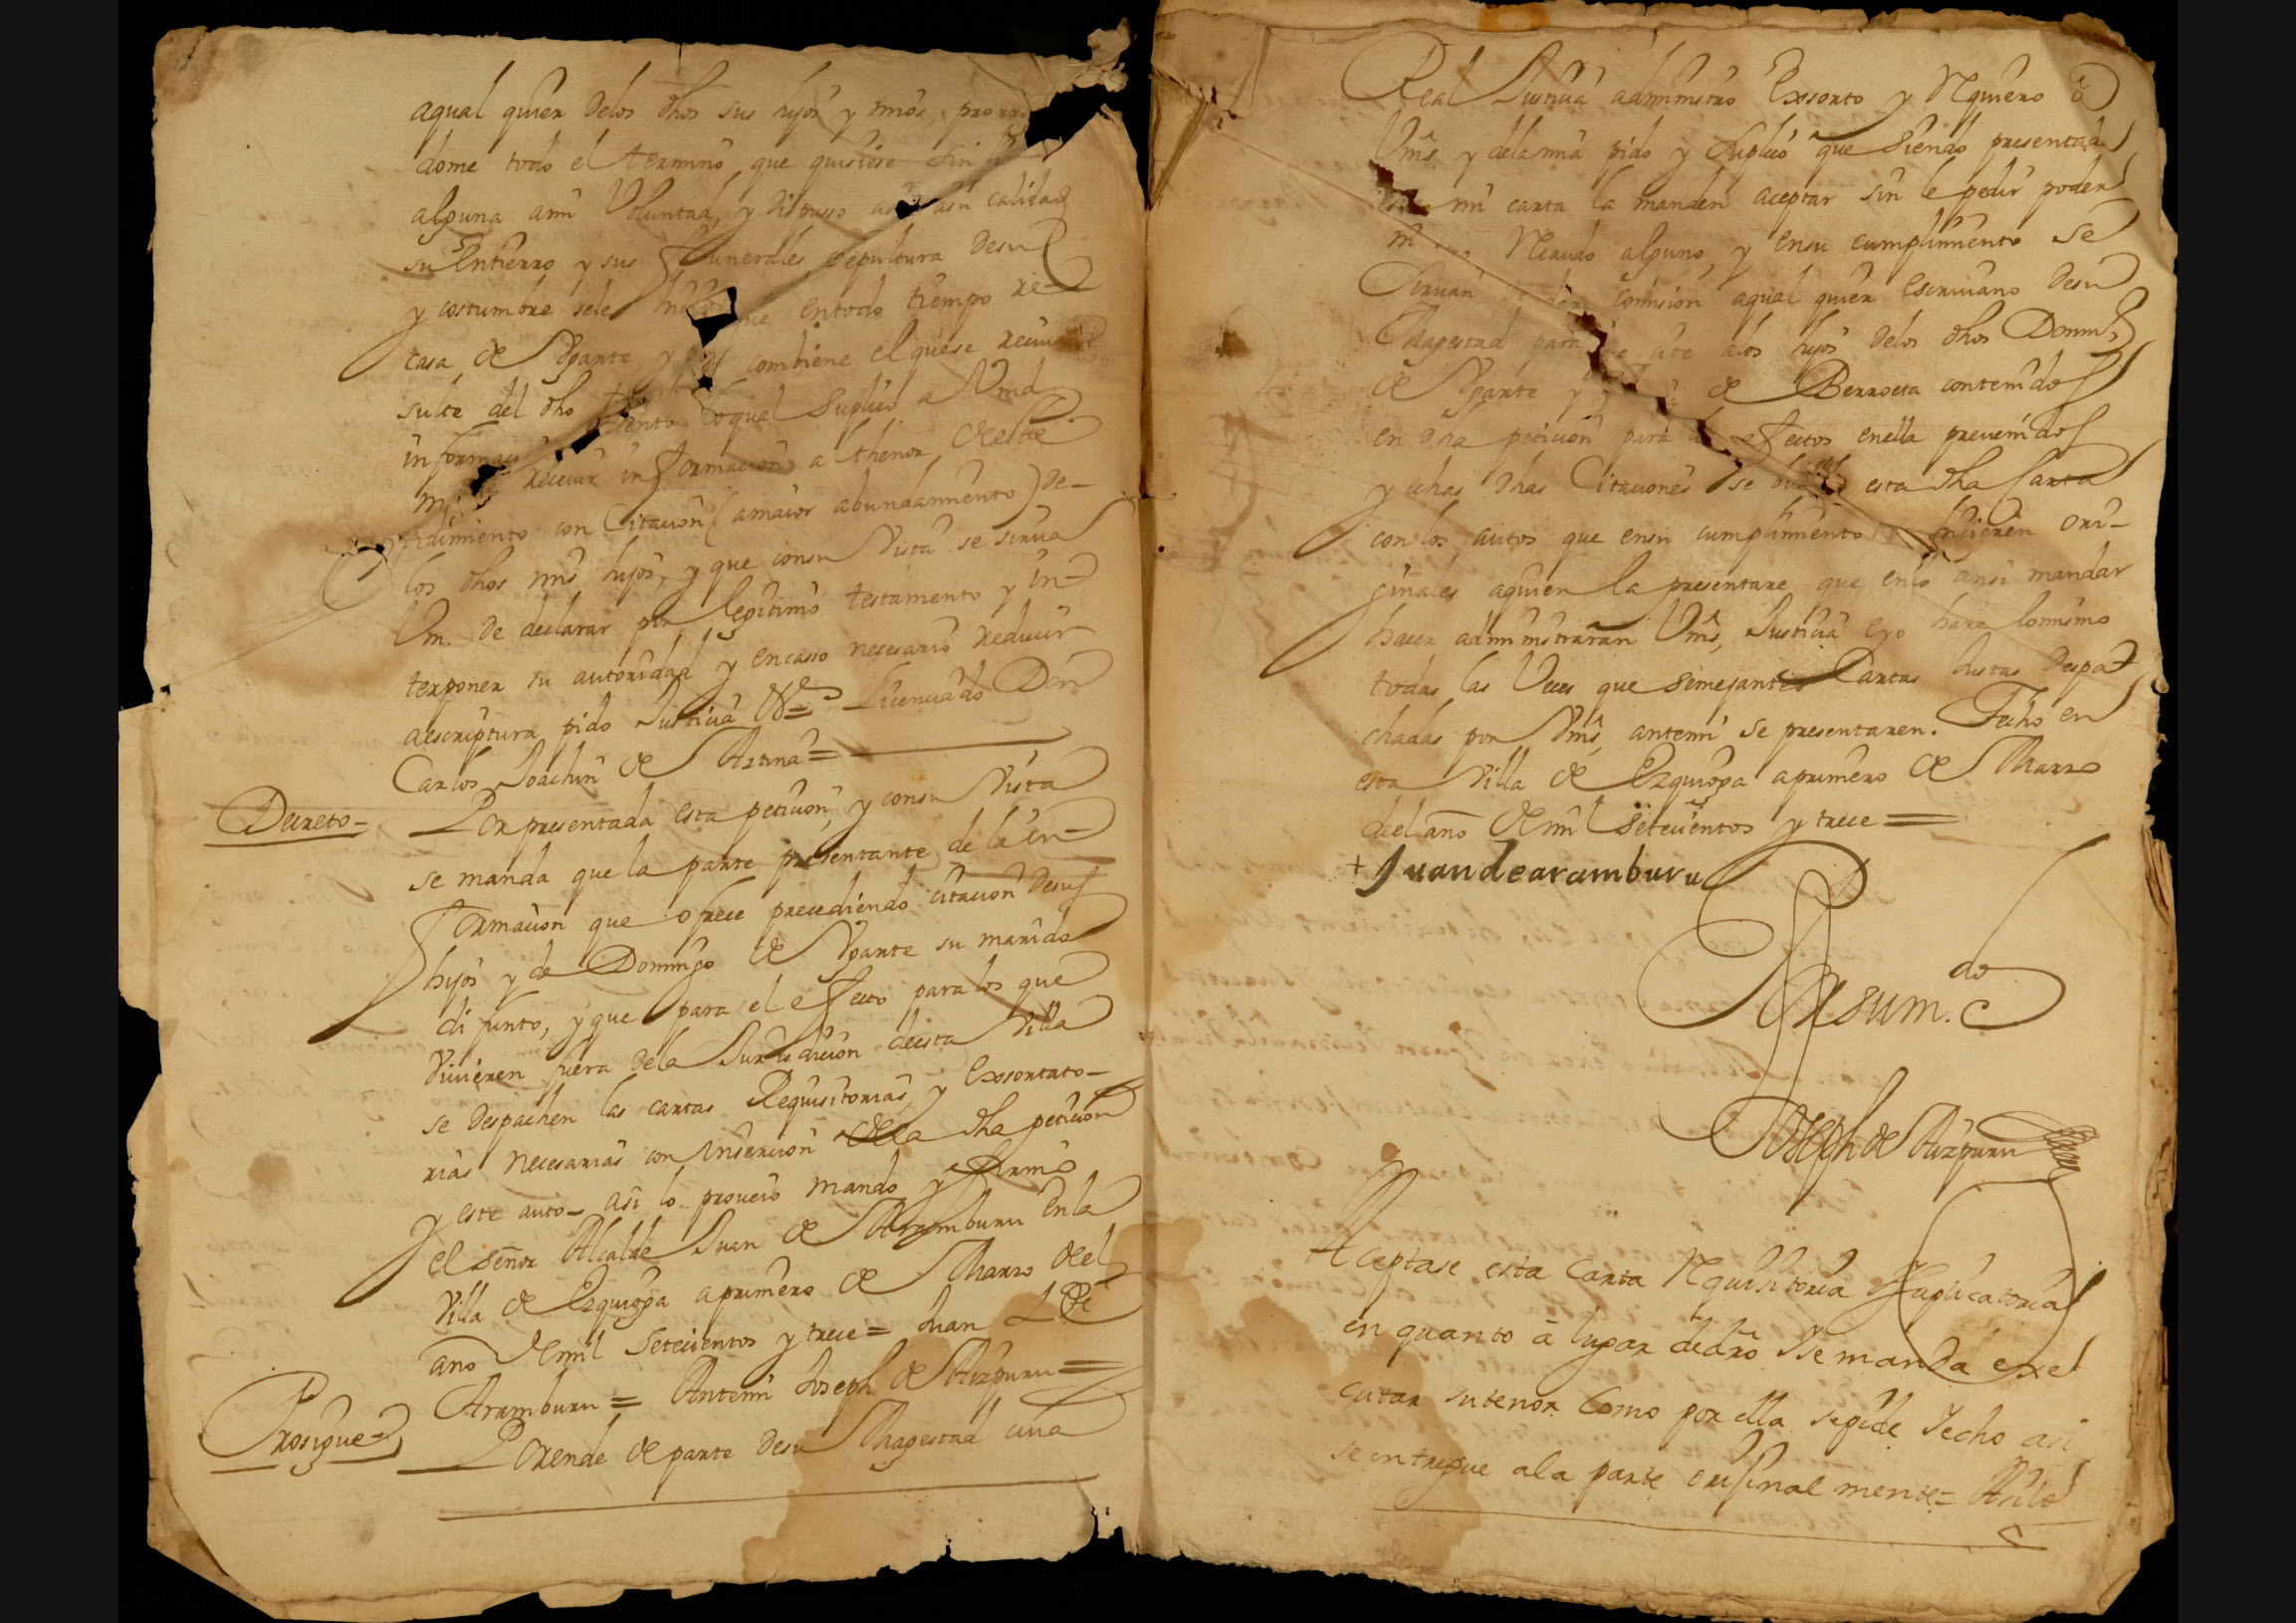 aqual quier delos dhos sus hijos y mios, prorr
dome todo el termino, que quisiese sin
alguna ami Voluntad, y dispusso asu calidad
su Entierro y sus funerales, sepultura desu
y costumbre sele que entodo tiempo re-
casa de Ygarte, y combiene el que se reciua
sulte del dho loqual suplico a Vmd
informaci reciuir informacion a lthenor deeste
pedimiento con Citacion (amaior abundamiento) de-
los dhos mis hijos, y que consu Vista se sirua
Vm. de declarar por legitimo testamento y in-
terponer su autoridad y encasso necesario reducir
aescriptura pido Justicia &ª Licenciado Don
Carlos Joachin de Aztina=
Decreto- Por presentada esta peticion, y consu Vista
se manda que la parte presentante de la in-
formacion que ofrece precediendo citacion desus
hijos y de Domingo de Ygarte su marido
difunto, y que para el efecto para los que
Viuieren fuera dela Jurisdicion deesta Villa
se despachen las cartas Requisitorias, y Exsortato-
rias necesarias con inserccion de la dha peticion
y este auto- asi lo proueio mando y firmo
el señor Alcalde Juan de Aramburu en la
Villa de Ezquioga aprimero de Marzo del
año de mil setecientos y trece= Juan de
Aramburu= Antemi Joseph de Aizpuru=
Prosigue- Porende de parte desu Magestad cuia
Real Justicia administro Exsorto y Requiero à
Vms, y dela mia pido y suplico que siendo presentada
esta mi carta la manden aceptar sin le pedir poder
ni Recaudo alguno, y ensu cumplimiento se
siruan de dar comision aqual quier escriuano desu
Magestad para que cite alos hijos delos dhos Domingo
de Ygarte y de Berroeta contenidos
en dha peticion para los efectos enella preuenidos
y echas dhas Citaciones se buelba esta dha Carta
con los autos que ensu cumplimiento hicieren ori-
ginales aquien la presentare que enlo ansi mandar
hacer administraran Vms, Justicia eyo hare lomismo
todas las Veces que semejantes Cartas Justas despa-
chadas por Vms, antemi se presentaren. Fecho en
esta Villa de Ezquioga aprimero de Marzo
del año de mil setecientos y trece=
+ Juan de aramburu
Por su m.do
Joseph de Aizpuru
Aceptase esta Carta Requisitoria Suplicatoria
en quanto à lugar de dro Y se manda exe
cutar su tenor Como por ella se pide Fecho asi
se entregue ala parte original mente=